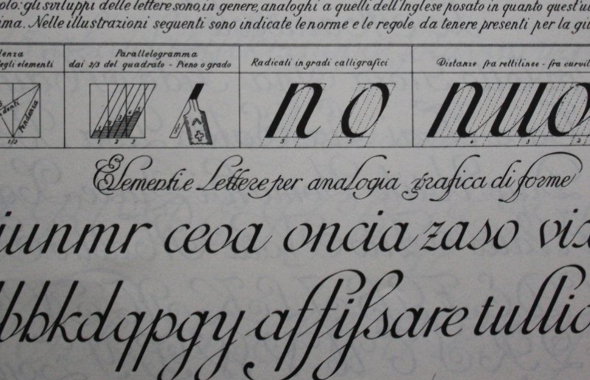 gli sviluppi delle lettere sono, in genere, analoghi a quelli dell'Inglese posato in quanto quest'u
ima. Nelle illustrazioni seguenti sono indicate le norme e le regole da tenere presenti per la giu
denza
degli elementi
Parallelogramma
dai 2/3 del quadrato - Pieno o grado
Radicati in gradi calligrafici
Distanze fra rettilinee - fra curvil
n o
nuo
Elementi e Lettere per analogia grafica di forme
iunmr ceoa oncia zaso vix
bbkdqpgy affissare tullio